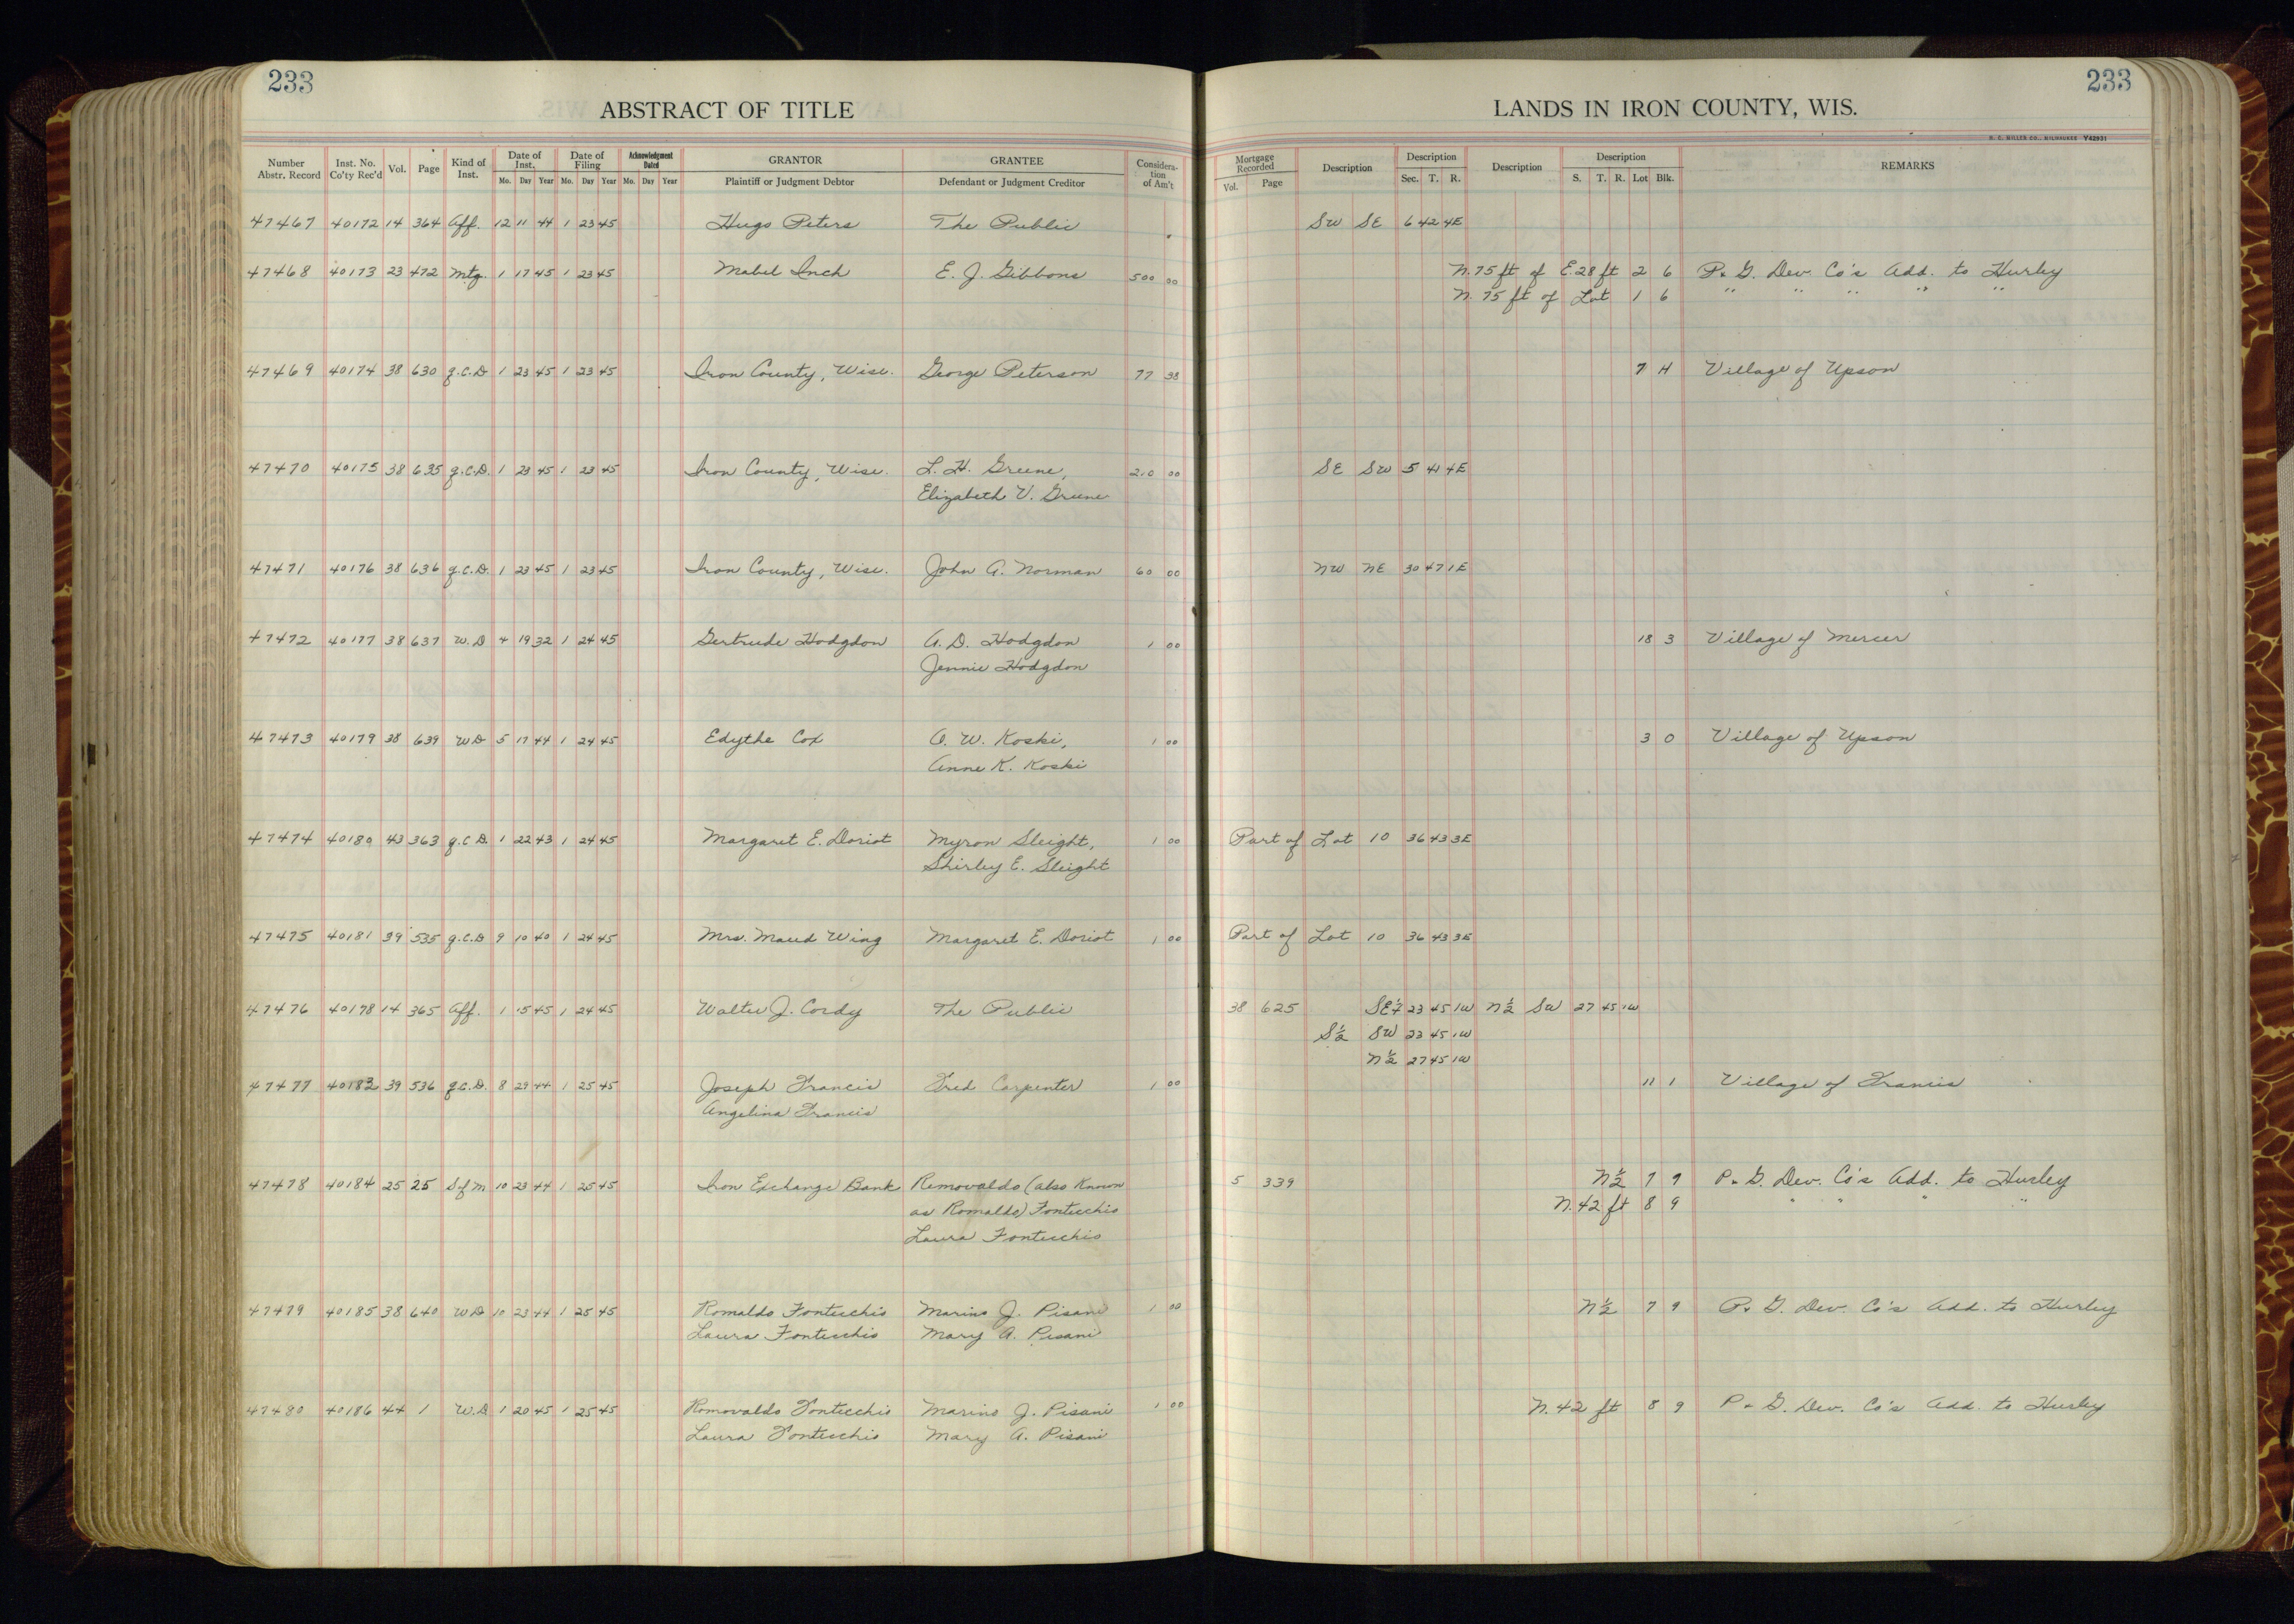 233
233
ABSTRACT OF TITLE
LANDS IN IRON COUNTY, WIS.
H. C. MILLER CO., MILWAUKEE Y42931
Number Abstr. Record Inst. No. Co'ty Rec'd Vol. Page Kind of Inst. Date of Inst. Mo. Day Year Date of Filing Mo. Day Year Acknowledgment Dated Mo. Day Year GRANTOR Plaintiff or Judgment Debtor GRANTEE Defendant or Judgment Creditor Consideration of Am't Mortgage Recorded Vol. Page Description Description Sec. T. R. Description Description S. T. R. Lot Blk. REMARKS
47467 40172 14 364 Aff. 12 11 44 1 23 45 Hugo Peters The Public SW SE 6 42 4E
47468 40173 23 472 Mtg. 1 17 45 1 23 45 Mabel Inch E. J. Gibbons 500 00 N. 75 ft of E. 28 ft 2 6 P. & G. Dev. Co's Add. to Hurley
N. 75 ft of Lot 1 6 " " " " "
47469 40174 38 630 Q.C.D 1 23 45 1 23 45 Iron County, Wisc. George Peterson 77 38 7 H Village of Upson
47470 40175 38 635 Q.C.D. 1 23 45 1 23 45 Iron County, Wisc. L. H. Greene, 210 00 SE SW 5 41 4E
Elizabeth V. Greene
47471 40176 38 636 Q.C.D. 1 23 45 1 23 45 Iron County, Wisc. John A. Norman 60 00 NW NE 30 47 1E
47472 40177 38 637 W.D 4 19 32 1 24 45 Gertrude Hodgdon A. D. Hodgdon 1 00 18 3 Village of Mercer
Jennie Hodgdon
47473 40179 38 639 WD 5 17 44 1 24 45 Edythe Cox O. W. Koski, 1 00 3 O Village of Upson
Anne K. Koski
47474 40180 43 363 Q.C.D. 1 22 43 1 24 45 Margaret E. Doriot Myron Sleight, 1 00 Part of Lot 10 36 43 3E
Shirley E. Sleight
47475 40181 39 535 Q.C.D 9 10 40 1 24 45 Mrs. Maud Wing Margaret E. Doriot 1 00 Part of Lot 10 36 43 3E
47476 40178 14 365 Aff. 1 15 45 1 24 45 Walter J. Cordy The Public 38 625 SE¼ 23 45 1W N½ SW 27 45 1W
S½ SW 23 45 1W
N½ 27 45 1W
47477 40183 39 536 Q.C.D. 8 29 44 1 25 45 Joseph Francis Fred Carpenter 1 00 11 1 Village of Francis
Angelina Francis
47478 40184 25 25 S of M 10 23 44 1 25 45 Iron Exchange Bank Removaldo (also Known 5 339 N½ 7 9 P. & G. Dev. Co's Add. to Hurley
as Romaldo) Fontecchio N. 42 ft 8 9 " " " "
Laura Fontecchio
47479 40185 38 640 WD 10 23 44 1 25 45 Romaldo Fontecchio Marino J. Pisani 1 00 N½ 7 9 P. & G. Dev. Co's Add. to Hurley
Laura Fontecchio Mary A. Pisani
47480 40186 44 1 W.D 1 20 45 1 25 45 Romovaldo Fontecchio Marino J. Pisani 1 00 N. 42 ft 8 9 P. & G. Dev. Co's Add. to Hurley
Laura Fontecchio Mary A. Pisani